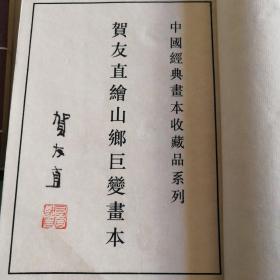 中國經典畫本收藏品系列
賀友直繪山鄉巨變畫本
賀友直